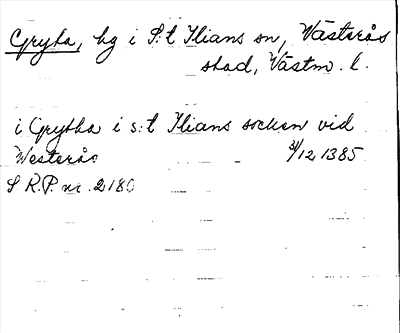 Gryta, hg i S:t Ilians sn, Västerås
stad, Västm. l.
i Grytha i s:t Ilians socken vid
Westerås /12 1385
S R.P. nr. 2180